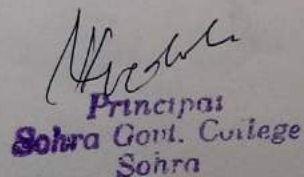 Principal
Sohra Govt. College
Sohra